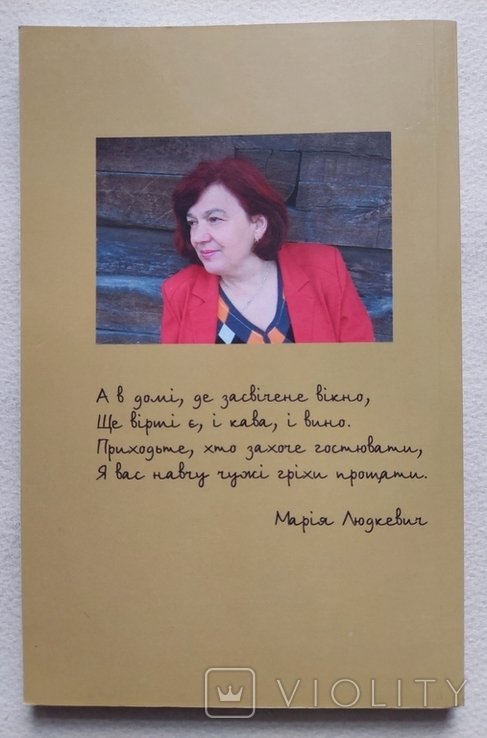 А в домі, де засвічене вікно,
Ще вірші є, і кава, і вино.
Приходьте, хто захоче гостювати,
Я вас навчу чужі гріхи прощати.
Марія Людкевич
VIOLITY